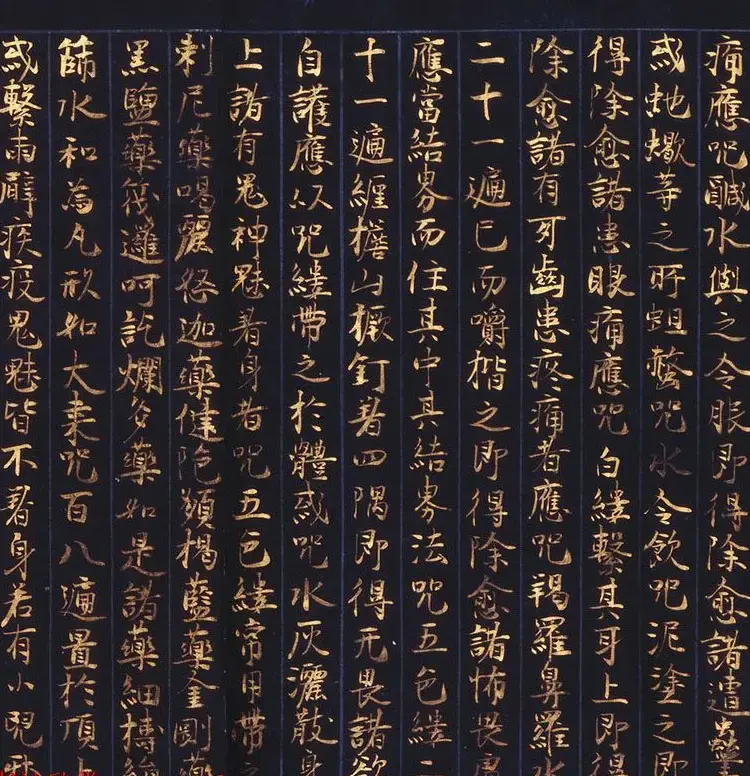 痛應咒鹹水與之令服即得除愈諸遭蠱
或虵蠍等之所蛆螫咒水令飲咒泥塗之即
得除愈諸患眼痛應咒白縷繫其耳上即得
除愈諸有牙齒患疼痛者應咒羯羅鼻羅木
二十一遍已而嚼楷之即得除愈諸怖畏處
應當結界而住其中其結界法咒五色縷二
十一遍纏檐山橛釘著四隅即得无畏諸欲
自護應以咒縷帶之於體或咒水灰灑散身
上諸有鬼神魅著身者咒五色縷常用帶之
刺尼藥喝麗怒迦藥健陀頞楬藍藥金剛藥
黑鹽藥筏邏呵訖爛多藥如是諸藥細搏
篩水和為丸形如大棗咒百八遍置於頂上
或繫兩臂疾疫鬼魅皆不著身若有小兒